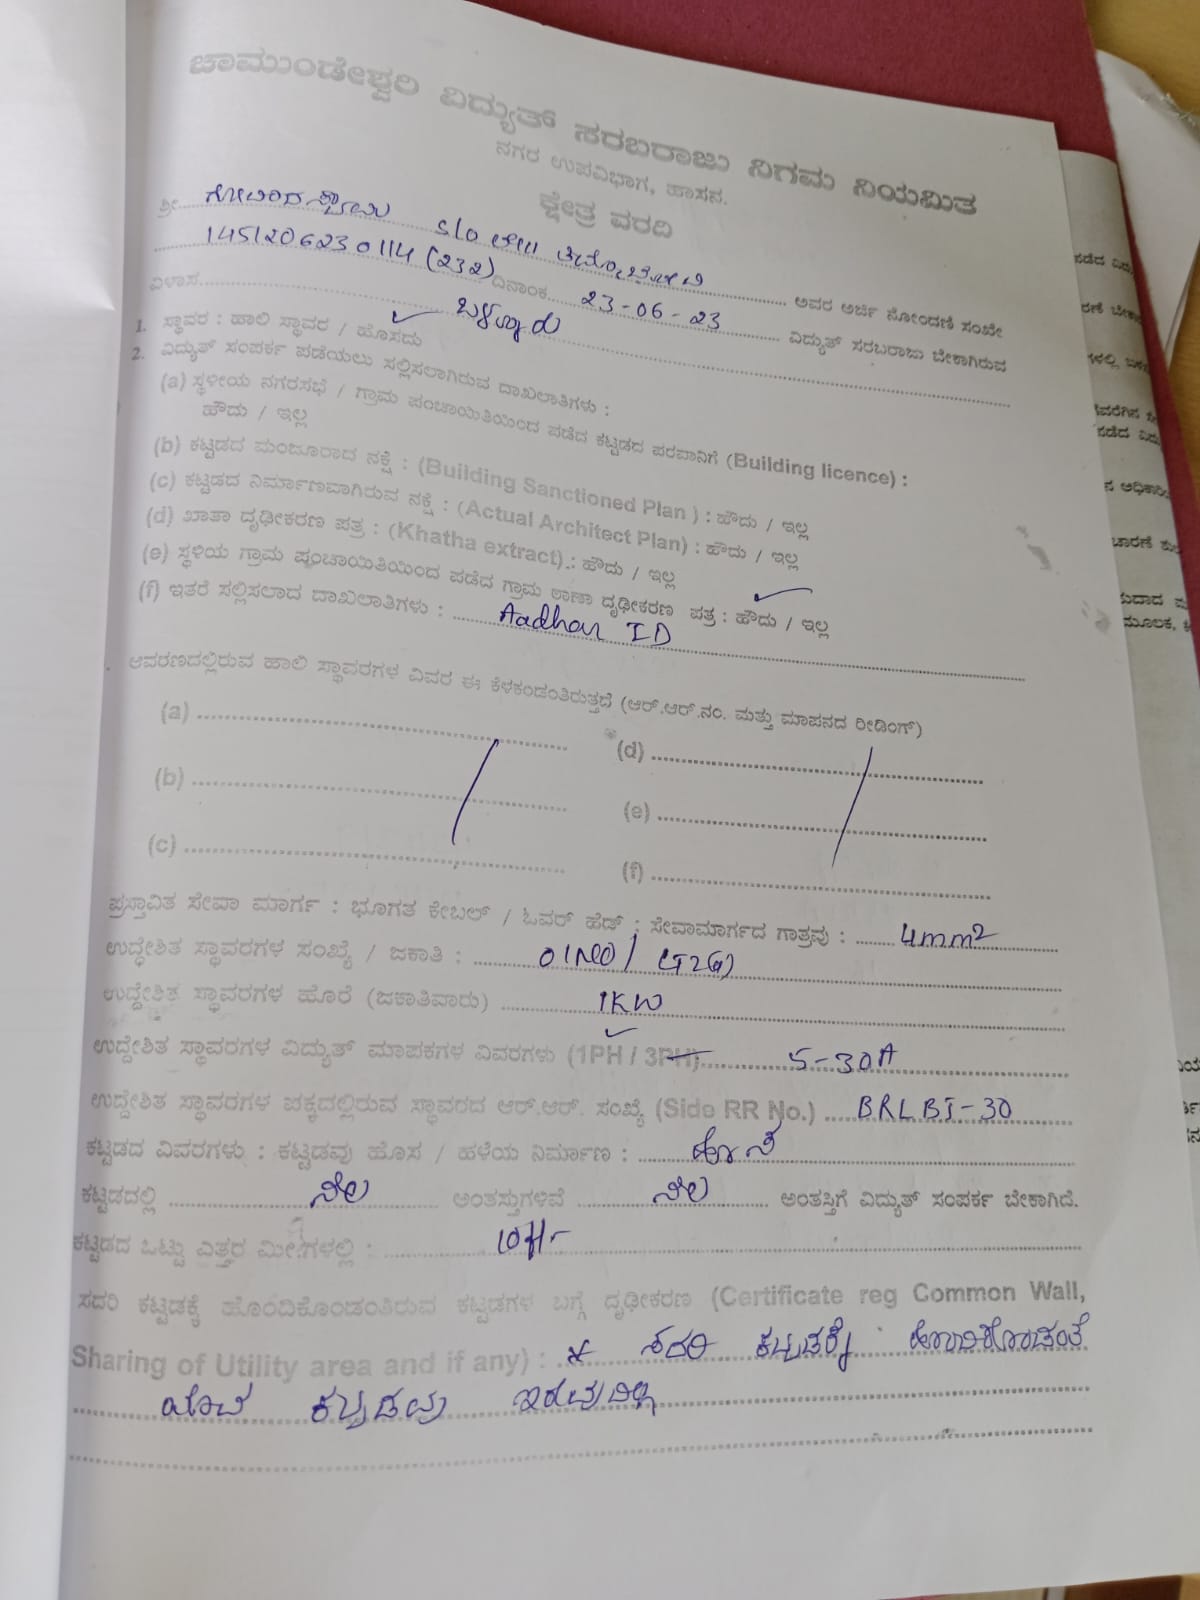 ಚಾಮುಂಡೇಶ್ವರಿ ವಿದ್ಯುತ್ ಸರಬರಾಜು ನಿಗಮ ನಿಯಮಿತ
ನಗರ ಉಪವಿಭಾಗ, ಹಾಸನ.
ಕ್ಷೇತ್ರ ವರದಿ
ಶ್ರೀ S/O ಅವರ ಅರ್ಜಿ ನೋಂದಣಿ ಸಂಖೇ
1451206230114 (232) ದಿನಾಂಕ 23-06-23 ವಿದ್ಯುತ್ ಸರಬರಾಜು ಬೇಕಾಗಿರುವ
ವಿಳಾಸ
1. ಸ್ಥಾವರ : ಹಾಲಿ ಸ್ಥಾವರ / ಹೊಸದು
2. ವಿದ್ಯುತ್ ಸಂಪರ್ಕ ಪಡೆಯಲು ಸಲ್ಲಿಸಲಾಗಿರುವ ದಾಖಲಾತಿಗಳು :
(a) ಸ್ಥಳೀಯ ನಗರಸಭೆ / ಗ್ರಾಮ ಪಂಚಾಯಿತಿಯಿಂದ ಪಡೆದ ಕಟ್ಟಡದ ಪರವಾನಿಗೆ (Building licence) :
ಹೌದು / ಇಲ್ಲ
(b) ಕಟ್ಟಡದ ಮಂಜೂರಾದ ನಕ್ಷೆ : (Building Sanctioned Plan ) : ಹೌದು / ಇಲ್ಲ
(c) ಕಟ್ಟಡದ ನಿರ್ಮಾಣವಾಗಿರುವ ನಕ್ಷೆ : (Actual Architect Plan) : ಹೌದು / ಇಲ್ಲ
(d) ಖಾತಾ ದೃಢೀಕರಣ ಪತ್ರ : (Khatha extract) : ಹೌದು / ಇಲ್ಲ
(e) ಸ್ಥಳಿಯ ಗ್ರಾಮ ಪಂಚಾಯಿತಿಯಿಂದ ಪಡೆದ ಗ್ರಾಮ ಠಾಣಾ ದೃಢೀಕರಣ ಪತ್ರ : ಹೌದು / ಇಲ್ಲ
(f) ಇತರೆ ಸಲ್ಲಿಸಲಾದ ದಾಖಲಾತಿಗಳು : Aadhar ID
ಆವರಣದಲ್ಲಿರುವ ಹಾಲಿ ಸ್ಥಾವರಗಳ ವಿವರ ಈ ಕೆಳಕಂಡಂತಿರುತ್ತದೆ (ಆರ್.ಆರ್.ನಂ. ಮತ್ತು ಮಾಪನದ ರೀಡಿಂಗ್)
(a) (d)
(b) (e)
(c) (f)
ಪ್ರಸ್ತಾವಿತ ಸೇವಾ ಮಾರ್ಗ : ಭೂಗತ ಕೇಬಲ್ / ಓವರ್ ಹೆಡ್ : ಸೇವಾಮಾರ್ಗದ ಗಾತ್ರವು : 4mm2
ಉದ್ಧೇಶಿತ ಸ್ಥಾವರಗಳ ಸಂಖ್ಯೆ / ಜಕಾತಿ :
ಉದ್ದೇಶಿತ ಸ್ಥಾವರಗಳ ಹೊರೆ (ಜಕಾತಿವಾರು) 1KW
ಉದ್ದೇಶಿತ ಸ್ಥಾವರಗಳ ವಿದ್ಯುತ್ ಮಾಪಕಗಳ ವಿವರಗಳು (1PH / 3PH) 5-30A
ಉದ್ದೇಶಿತ ಸ್ಥಾವರಗಳ ಪಕ್ಕದಲ್ಲಿರುವ ಸ್ಥಾವರದ ಆರ್.ಆರ್. ಸಂಖ್ಯೆ (Side RR No.) BRLBJ-30
ಕಟ್ಟಡದ ವಿವರಗಳು : ಕಟ್ಟಡವು ಹೊಸ / ಹಳೆಯ ನಿರ್ಮಾಣ : ಹೊಸ
ಕಟ್ಟಡದಲ್ಲಿ ನೆಲ ಅಂತಸ್ತುಗಳಿವೆ ನೆಲ ಅಂತಸ್ತಿಗೆ ವಿದ್ಯುತ್ ಸಂಪರ್ಕ ಬೇಕಾಗಿದೆ.
ಕಟ್ಟಡದ ಒಟ್ಟು ಎತ್ತರ ಮೀ.ಗಳಲ್ಲಿ : 10ft-
ಸದರಿ ಕಟ್ಟಡಕ್ಕೆ ಹೊಂದಿಕೊಂಡಂತಿರುವ ಕಟ್ಟಡಗಳ ಬಗ್ಗೆ ದೃಢೀಕರಣ (Certificate reg Common Wall,
Sharing of Utility area and if any) : * ಸದರಿ ಕಟ್ಟಡಕ್ಕೆ ಹೊಂದಿಕೊಂಡಂತೆ
ಯಾವ ಕಟ್ಟಡವು ಇರುವುದಿಲ್ಲ